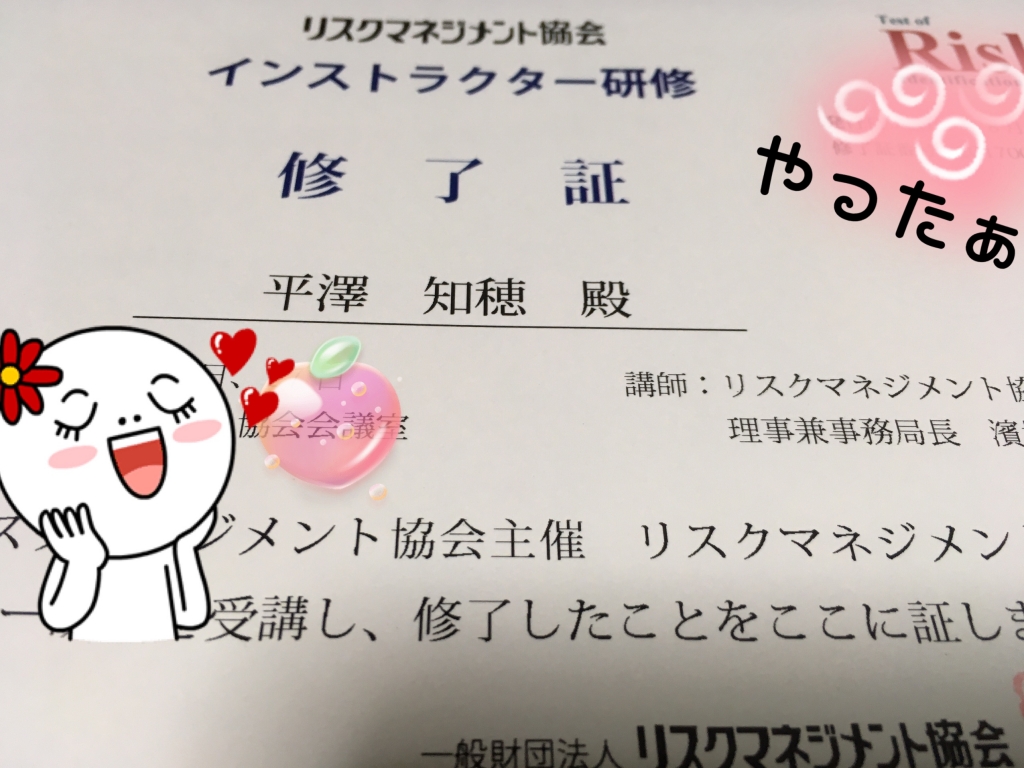 リスクマネジメント協会
Test of
Ris
インストラクター研修
修了証
やったぁ
平澤 知穂 殿
講師：リスクマネジメント協
協会会議室
理事兼事務局長 濱
ジメント協会主催 リスクマネジメン
受講し、修了したことをここに証しま
一般財団法人 リスクマネジメント協会